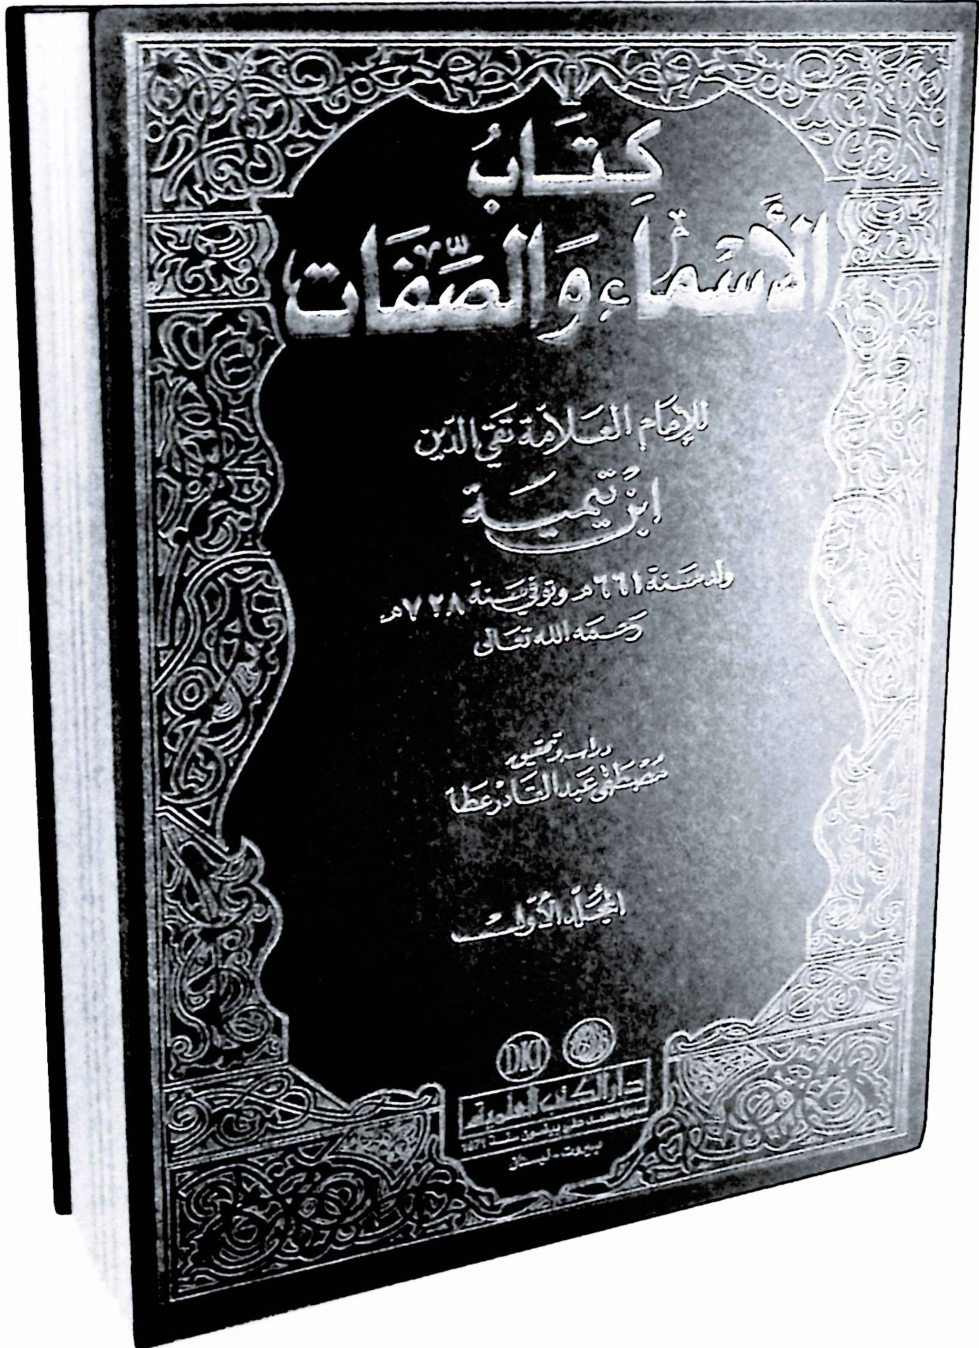 كِتَابُ
الأَسْمَاءِ وَالصِّفَات
للإمَام العَلاّمَة تَقيّ الدّين
ابْن تَيميَة
ولد سَنة ٦٦١هـ وتوفي سَنة ٧٢٨هـ
رَحمَه الله تعَالى
دراسة وتحقيق
مُصْطَفى عَبد القَادر عَطا
المجُلّد الأوّلــــ
DKI
دار الكتب العلمية
أسسها محمد علي بيضون سنة 1971
بيروت - لبنان